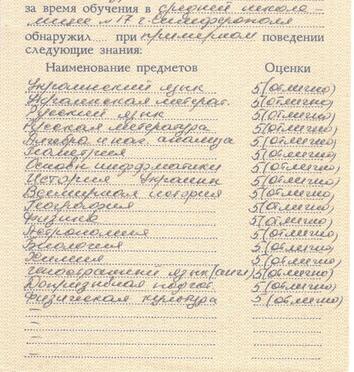 за время обучения в средней школе-
лицее №17 г. Симферополя
обнаружил при примерном поведении
следующие знания:
Наименование предметов Оценки
Украинский язык 5(отлично)
Украинская литерат. 5(отлично)
Русский язык 5(отлично)
Русская литература 5(отлично)
Алгебра и нач. анализа 5(отлично)
Геометрия 5(отлично)
Основы информатики 5(отлично)
История Украины 5(отлично)
Всемирная история 5(отлично)
География 5(отлично)
Физика 5(отлично)
Астрономия 5(отлично)
Биология 5(отлично)
Химия 5(отлично)
Иностранный язык(англ) 5(отлично)
Допризывная подгот. 5(отлично)
Физическая культура 5(отлично)
–
–
–
–